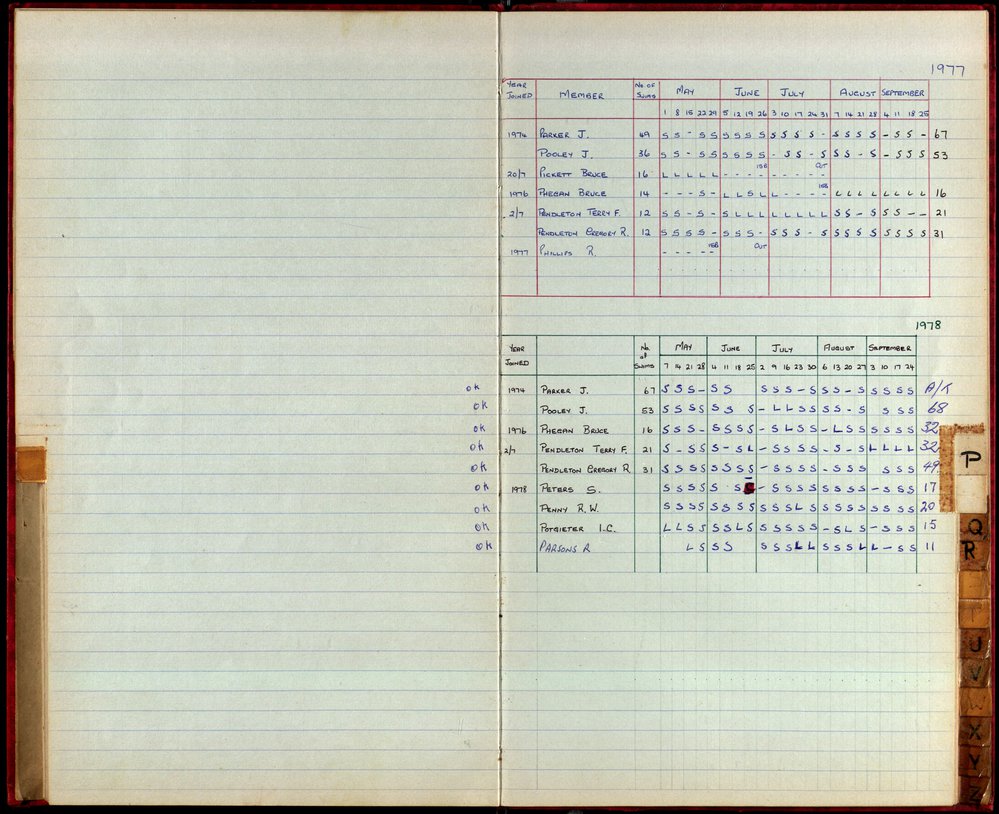 1977
YEAR JOINED MEMBER No OF SWIMS MAY JUNE JULY AUGUST SEPTEMBER
1 8 15 22 29 5 12 19 26 3 10 17 24 31 7 14 21 28 4 11 18 25
1974 PARKER J. 49 S S - S S S S S S S S S S - S S S S - S S - 67
POOLEY J. 36 S S - S S S S S S - S S - S S S - S - S S S 53
20/7 PICKETT BRUCE 16 L L L L L - - - - - - - - - 158 OUT
1976 PHEGAN BRUCE 14 - - - S - L L S L L - - - - 158 L L L L L L L L 16
2/7 PENDLETON TERRY F. 12 S S - S - S L L L L L L L L S S - S S S - - 21
PENDLETON GREGORY R. 12 S S S S - S S S - S S S - S S S S S S S S S 31
1977 PHILLIPS R. - - - - - 158 OUT
1978
YEAR JOINED No of SWIMS MAY JUNE JULY AUGUST SEPTEMBER
7 14 21 28 4 11 18 25 2 9 16 23 30 6 13 20 27 3 10 17 24
ok 1974 PARKER J. 67 S S S - S S S S S - S S S - S S S S S A/K
ok POOLEY J. 53 S S S S S S S - L L S S S S - S S S S 68
ok 1976 PHEGAN BRUCE 16 S S S - S S S S - S L S S - L S S S S S S 32
ok 2/7 PENDLETON TERRY F. 21 S - S S S - S L - S S S S - S - S L L L L 32
ok PENDLETON GREGORY R 31 S S S S S S S S - S S S S - S S S S S S 49
ok 1978 PETERS S. S S S S S S - S S S S S S S S - S S S 17
ok PENNY R.W. S S S S S S S S S S S L S S S S S S S S S 20
ok POTGIETER I.C. L L S S S S L S S S S S S - S L S - S S S 15
ok PARSONS R L S S S S S S L L S S S L L - S S 11
P
Q
R
T
U
V
W
X
Y
Z